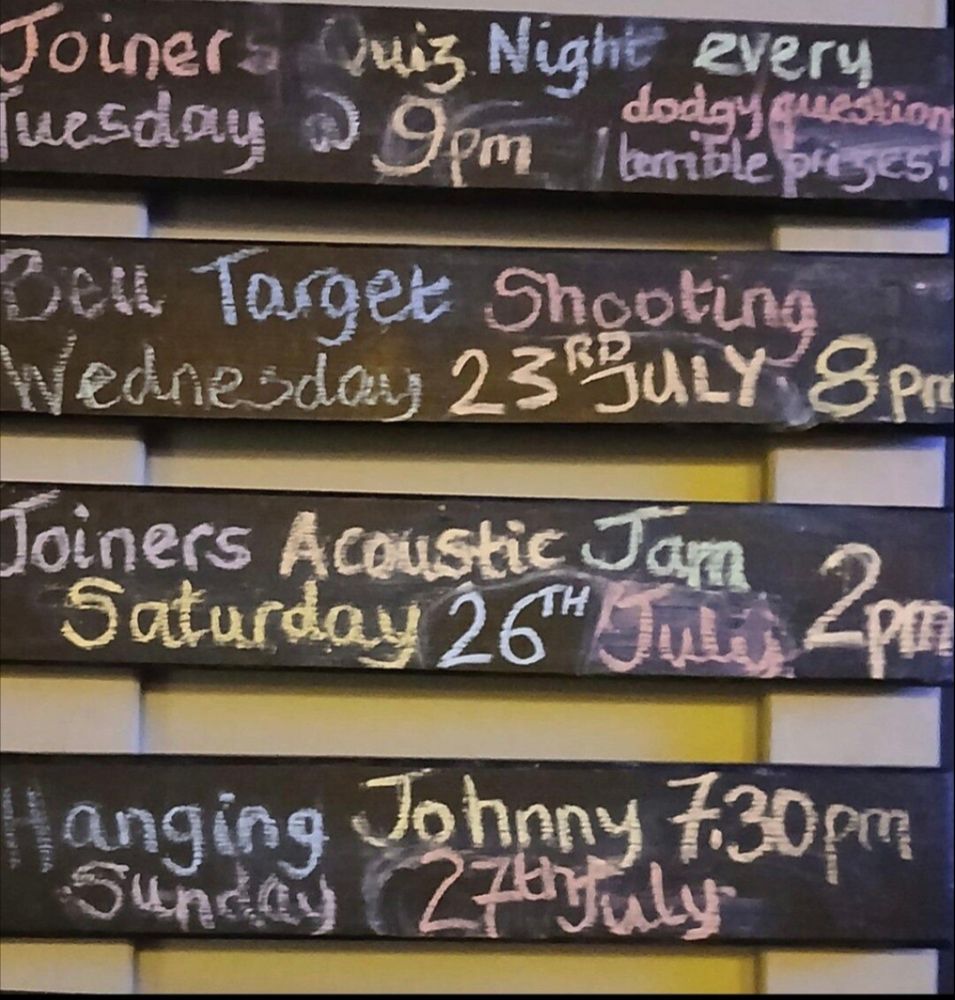 Joiners Quiz Night every
Tuesday @ 9pm
dodgy question
terrible prizes!
Bell Target Shooting
Wednesday 23RD JULY 8pm
Joiners Acoustic Jam
Saturday 26TH July 2pm
Hanging Johnny 7.30pm
Sunday 27th July